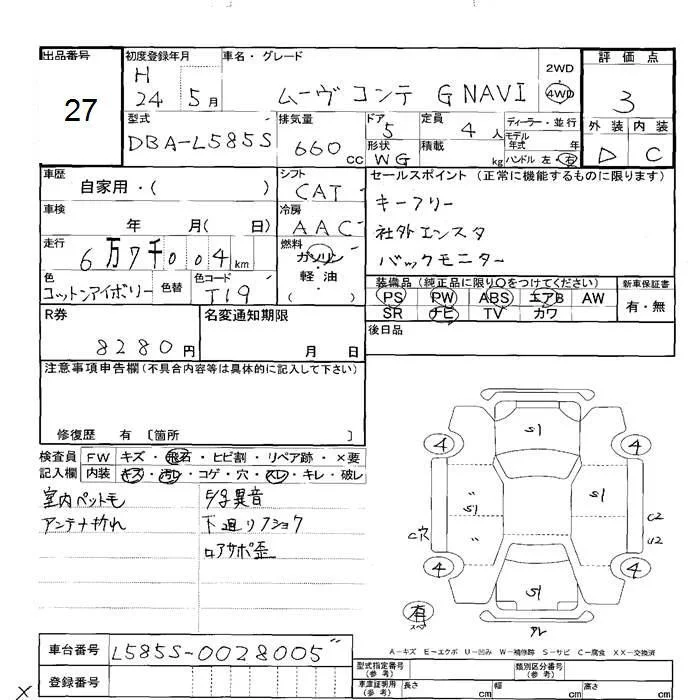 出品番号
27
初度登録年月
H
24 5月
車名・グレード
ムーヴ コンテ G NAVI
2WD
4WD
評価点
3
外装 内装
D C
型式
DBA-L585S
排気量
660cc
ドア
5
形状
WG
定員
4人
積載
kg
ディーラー・並行
モデル年式 年
ハンドル 左・右
車歴
自家用・( )
シフト
CAT
セールスポイント (正常に機能するものに限ります)
キーフリー
社外エンスタ
バックモニター
車検
年 月( 日)
冷房
AAC
走行
6万7千004km
燃料
ガソリン
軽・油
( )
色
コットンアイボリー
色替
色コード
T19
装備品 (純正品に限り○をつけてください)
PS PW ABS エアB AW
SR ナビ TV カワ
新車保証書
有・無
R券
8280円
名変通知期限
月 日
後日品
注意事項申告欄(不具合内容等は具体的に記入して下さい)
修復歴 有 〔箇所 〕
検査員記入欄
FW キズ・飛石・ヒビ割・リペア跡・×要
内装 キズ・汚レ・コゲ・穴・スレ・キレ・破レ
室内ペットモ
アンテナヤれ
下廻リフショク
ロアサポ歪
S1
4 4
S1 S1
C穴
C2
U2
4 4
S1
有
スペ
A-キズ E-エクボ U-凹み W-補修跡 S-サビ C-腐食 XX-交換済
車台番号
L585S-0028005
登録番号
型式指定番号
(参考)
類別区分番号
(参考)
車庫証明用
(参考)
長さ cm 幅 cm 高さ cm